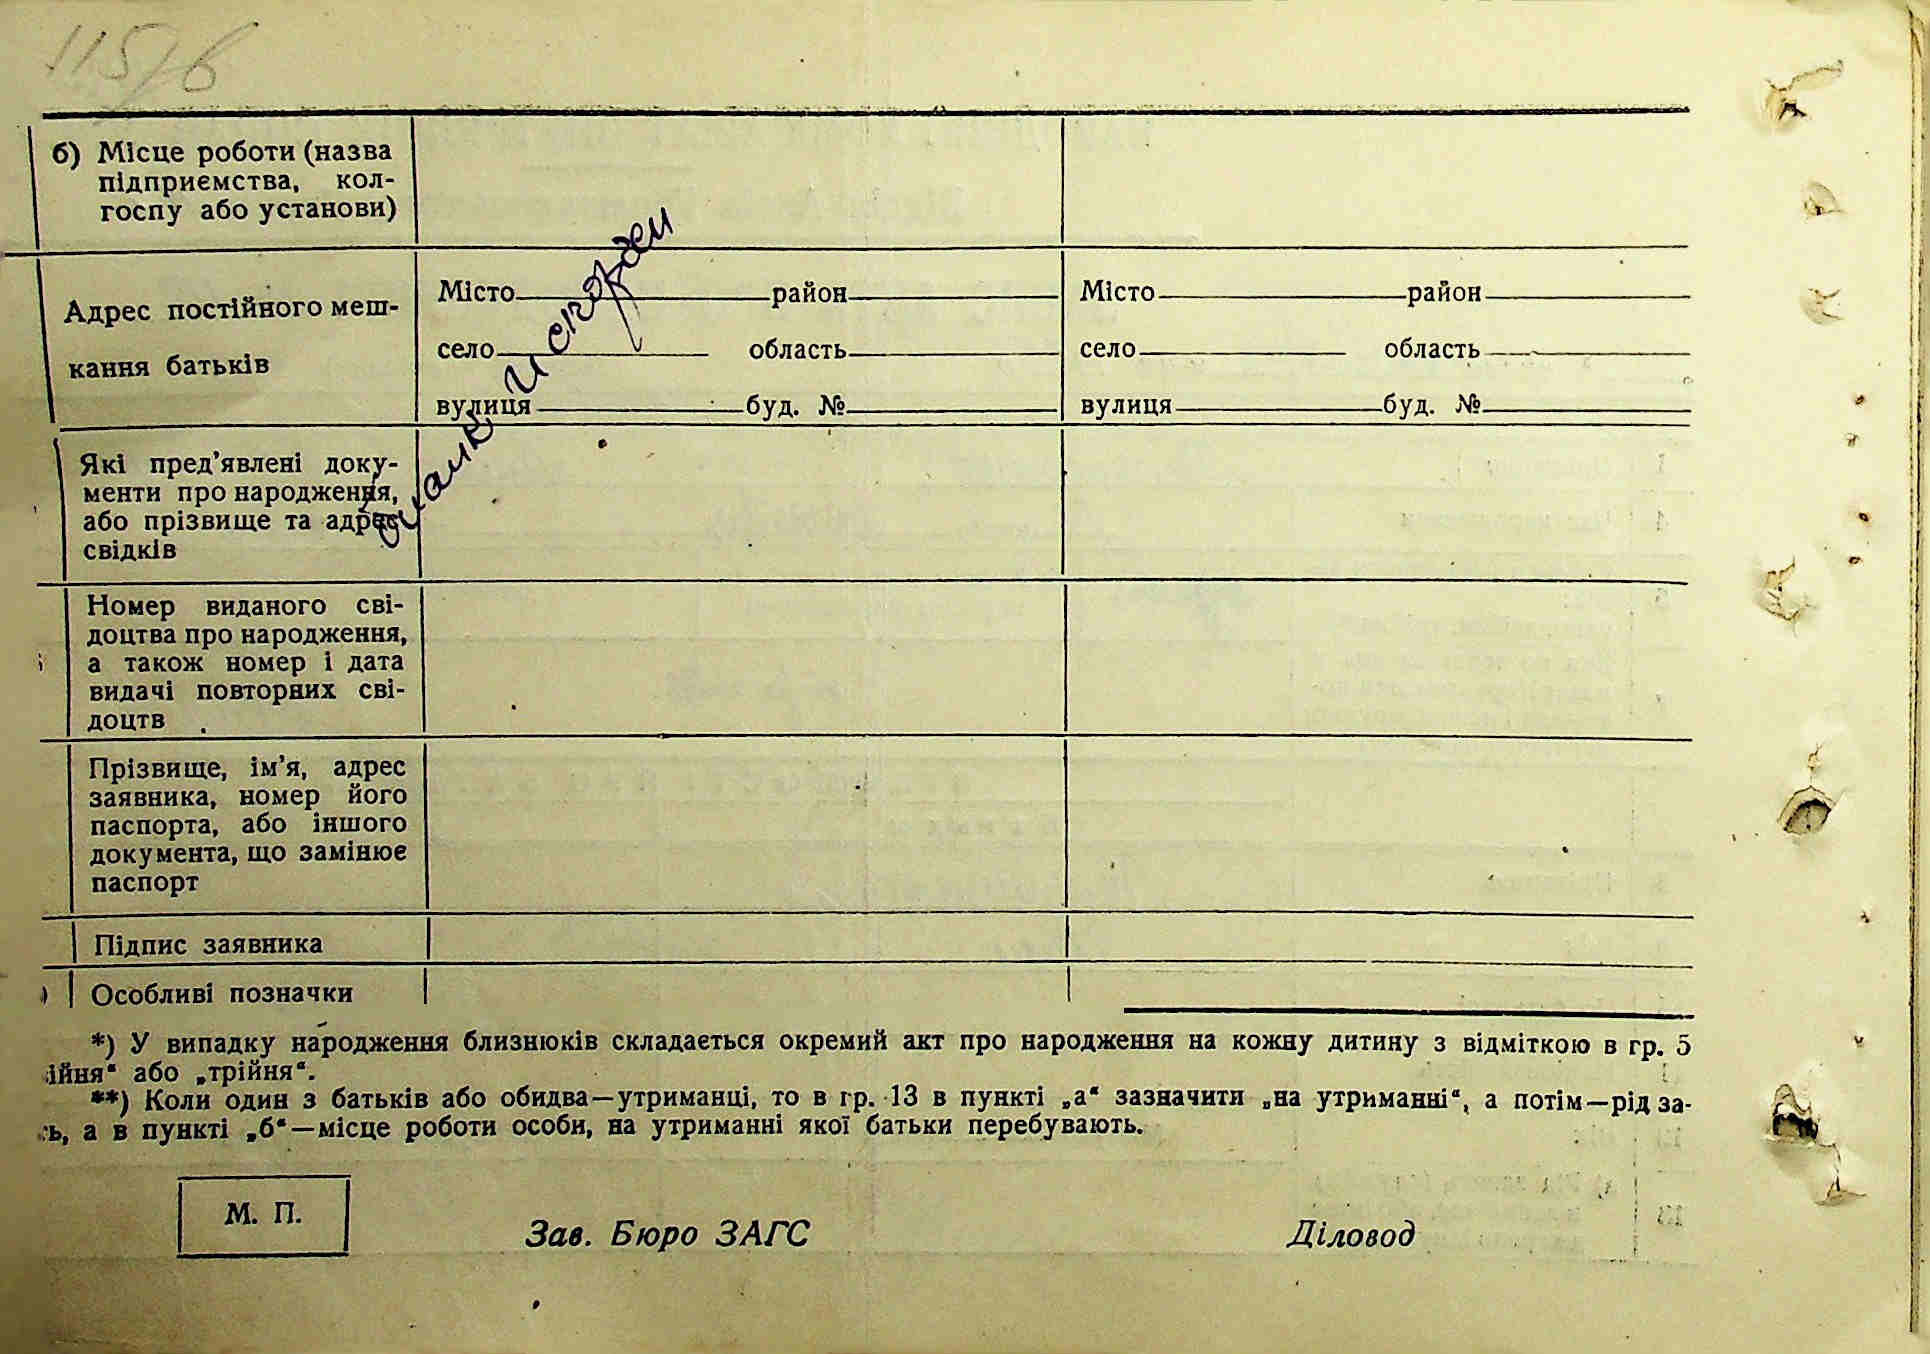 115/в
б) Місце роботи (назва
підприємства, кол-
госпу або установи)
Адрес постійного меш-
кання батьків
Місто район
село область
вулиця буд. №
Місто район
село область
вулиця буд. №
бланк испорчен
Які пред’явлені доку-
менти про народження,
або прізвище та адрес
свідків
Номер виданого сві-
доцтва про народження,
а також номер і дата
видачі повторних сві-
доцтв
Прізвище, ім’я, адрес
заявника, номер його
паспорта, або іншого
документа, що замінює
паспорт
Підпис заявника
Особливі позначки
*) У випадку народження близнюків складається окремий акт про народження на кожну дитину з відміткою в гр. 5
ійня“ або „трійня“.
**) Коли один з батьків або обидва—утриманці, то в гр. 13 в пункті „а“ зазначити „на утриманні“, а потім—рід за-
ь, а в пункті „б“—місце роботи особи, на утриманні якої батьки перебувають.
М. П.
Зав. Бюро ЗАГС
Діловод